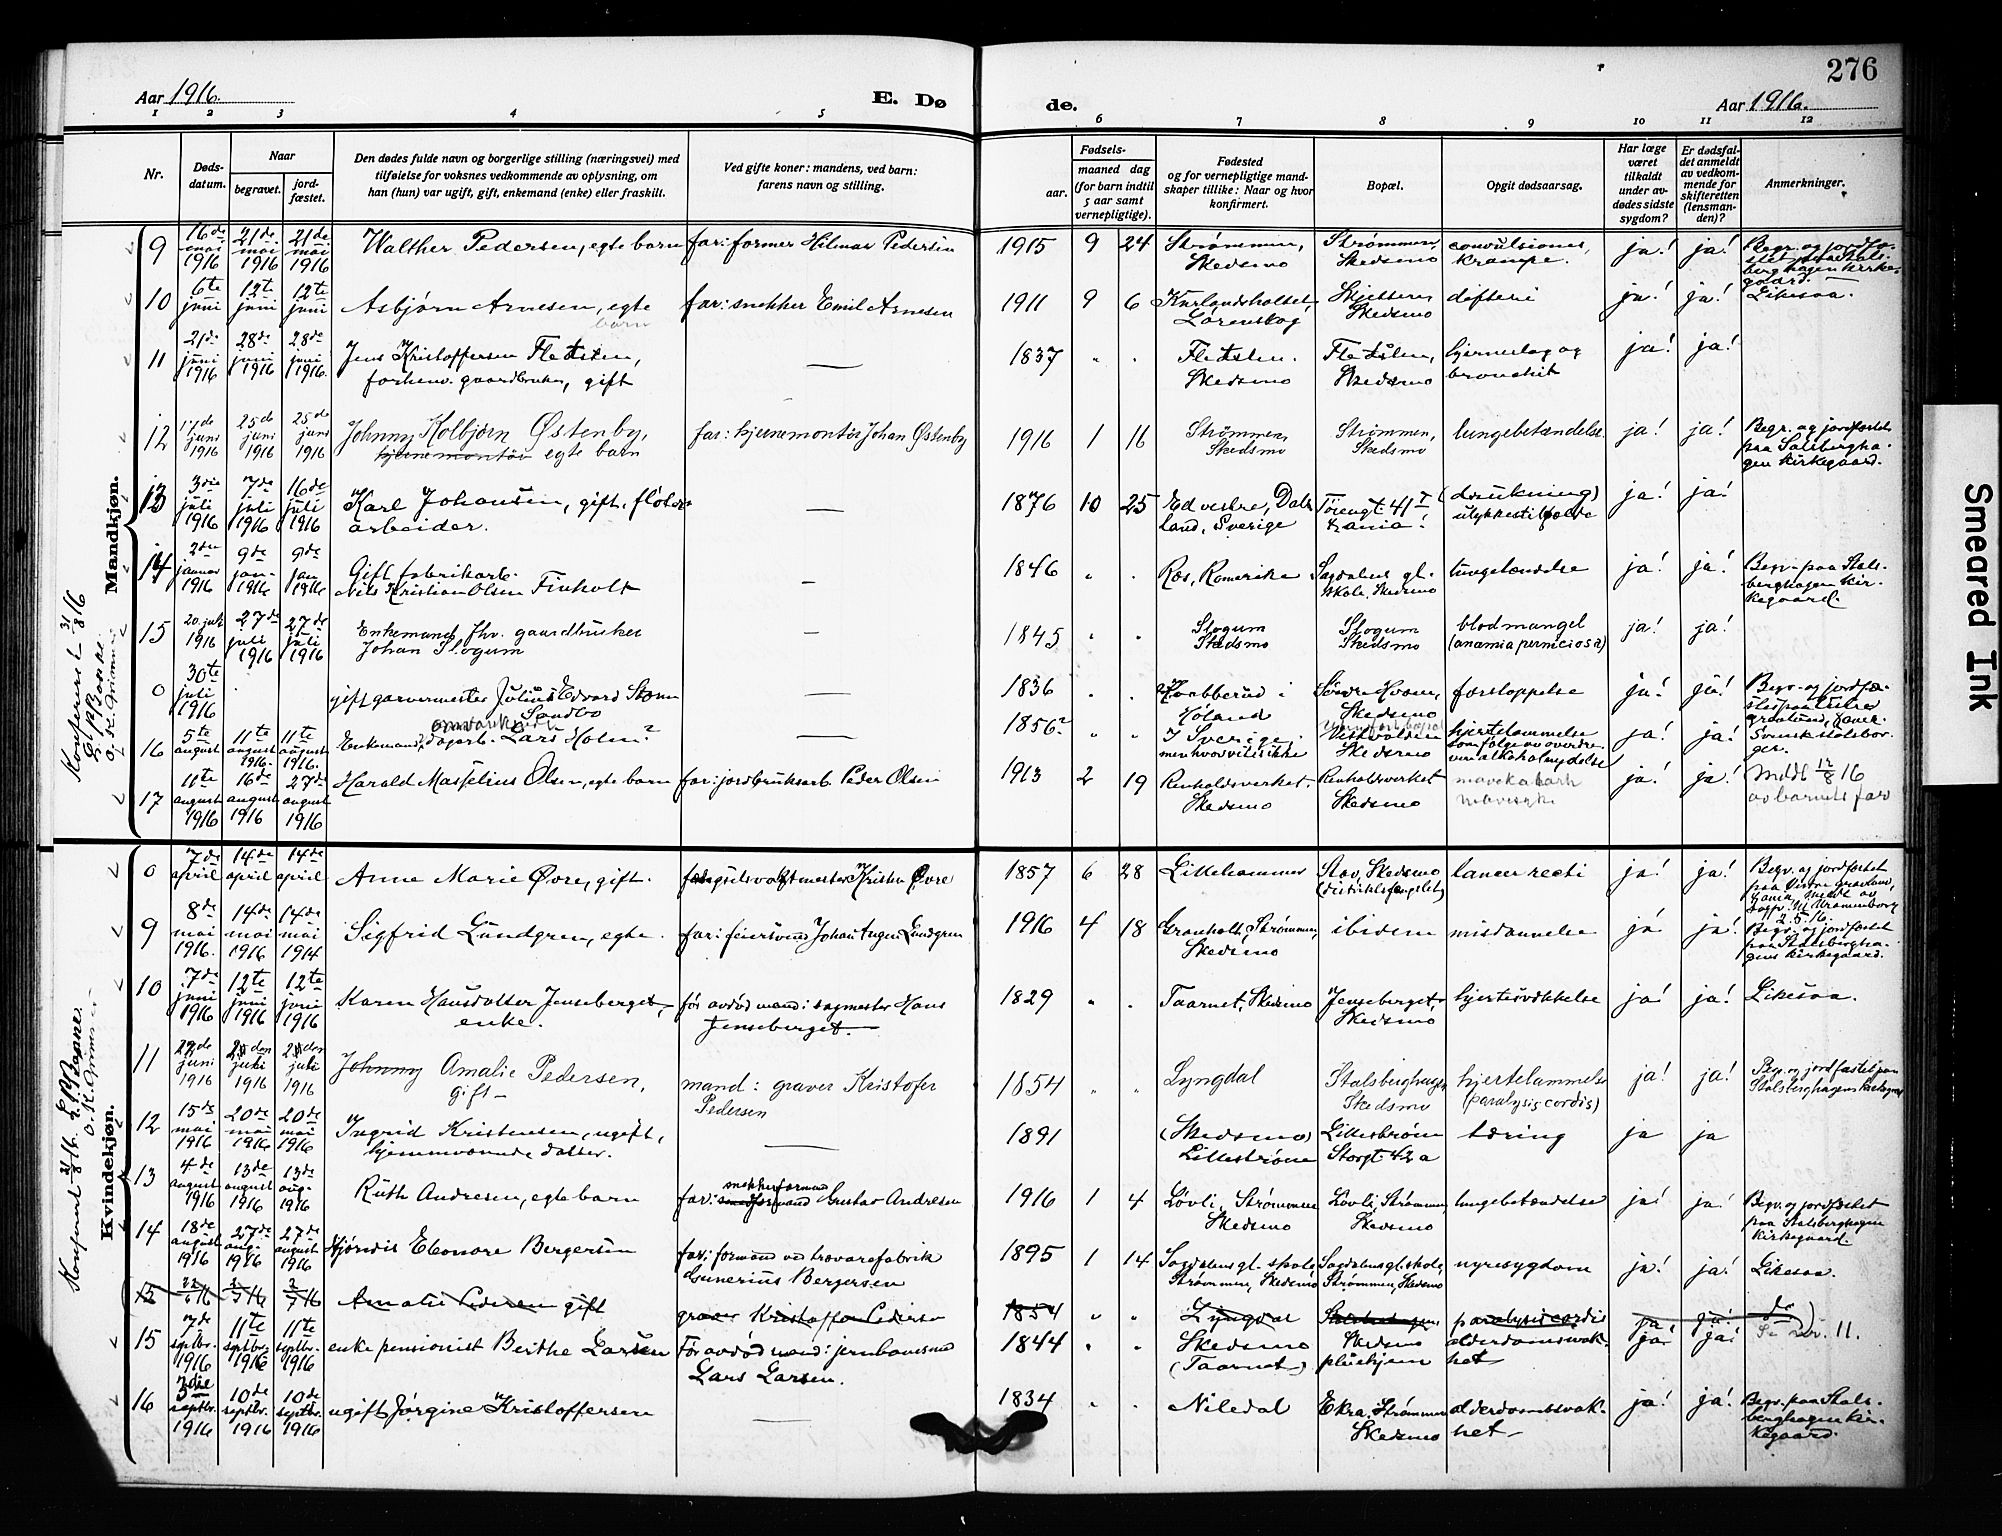 276
Aar 1916.
E. Dø de.
Aar 1916.
1 2 3 4 5 6 7 8 9 10 11 12
Nr.
Døds-
datum.
Naar
begravet.
jord-
fæstet.
Den dødes fulde navn og borgerlige stilling (næringsvei) med
tilføielse for voksnes vedkommende av oplysning, om
han (hun) var ugift, gift, enkemand (enke) eller fraskilt.
Ved gifte koner: mandens, ved barn:
farens navn og stilling.
Fødsels-
aar.
maaned dag
(for barn indtil
5 aar samt
vernepligtige).
Fødested
og for vernepligtige mand-
skaper tillike: Naar og hvor
konfirmert.
Bopæl.
Opgit dødsaarsag.
Har læge
været
tilkaldt
under av-
dødes sidste
sygdom?
Er dødsfal-
det anmeldt
av vedkom-
mende for
skifteretten
(lensman-
den)?
Anmerkninger.
Mandkjøn.
9 16de mai 1916 21de mai 1916 21de mai 1916 Walther Pedersen, egte barn far: former Hilmar Pedersen 1915 9 24 Strømmen, Skedsmo Strømmen, Skedsmo convulsiones, krampe. ja! ja! Begr. og jordfæ-
stet paa Stals-
berghagen kirke-
gaard.
10 6te juni 12te juni 12te juni Asbjørn Arnesen, egte barn far: snekker Emil Arnesen 1911 9 6 Lørenskog Skjetten Skedsmo difteri ja! ja! Likesaa.
11 21de juni 1916 28de juni 1916 28de juni 1916. Jens Kristoffersen Flatsten,
forhenv. gaardbruker, gift — 1837 " " Flatsten. Skedsmo Flatsten, Skedsmo hjerneslag og bronchit ja! ja!
12 17de juni 1916 25de juni 1916 25de juni 1916 Johnny Kolbjørn Østenby,
hjernemontør egte barn far: hjernemontør Johan Østenby 1916 1 16 Strømmen, Skedsmo Strømmen, Skedsmo lungebetændelse. ja! ja! Begr. og jordfæstet
paa Stalsbergha-
gen kirkegaard.
13 3die juli 1916 7de juli 1916 16de juli 1916 Karl Johansen, gift, fløter-
arbeider. — 1876 10 25 Ed vestre, Dals-
land, Sverige (drukning) ulykkestilfælde ja! ja!
14 2den januar 1916 9de jan. 1916 9de jan 1916 Gift fabrikarb.
Nils Kristian Olsen Finholt — 1846 " " Næs, Romerike Sagdalens gl.
skole, Skedsmo lungebetændelse ja! ja! Begr. paa Stals-
berghagen kir-
kegaard.
15 20. juli 1916 27de juli 1916 27de juli 1916 Enkemand fhv. gaardbruker
Johan Slogum — 1845 " " Slogum Skedsmo Slogum Skedsmo blodmangel
(anæmia perniciosa) ja! ja!
0 30te juli 1916 gift garvermester Julius Edvard Storm
Sandbo — 1836 " " Høland Søndre Hvam, Skedsmo forstoppelse ja! ja! Begr. og jordfæ-
16 5te august 11te august 1916. 11te august 1916. Enkemand, dagarb. Lars Holm? — 1856? " " I Sverige,
men hvor vites ikke Skedsmo hjertelammelse
som følge av overdre-
ven alkoholnydelse ja! ja! Svensk statsbor-
ger.
17 11te august 1916 16de august 1916 27de august 1916 Harald Marselius Olsen, egte barn far: jordbruksarb. Peder Olsen 1913 2 19 Renholdsverket. Skedsmo Renholdsverket Skedsmo ja! ja! Meldt 12/8 16
av barnets far
Konferert 31/8 16
Kvindekjøn.
0 7de april 14de april 14de april Anne Marie Øvre, gift. Kristen Øvre 1857 6 28 Lillehammer Stav, Skedsmo
(distriktsfængslet) cancer recti ja! ja! Begr. og jordfæstet
paa Vestre gravlund,
2.5.16.
9 8de mai 1916. 14de mai 1916 14de mai 1914 Sigfrid Lundgren, egte. far: feiersvend Johan Lundgren 1916 4 18 Granholt, Strømmen, Skedsmo ibidem misdannelse ja ja! Begr. og jordfæstet
paa Stalsbergha-
gens kirkegaard.
10 7de juni 1916 12te juni 1916 12te juni 1916 Karen Hansdatter Jenseberget,
enke. for avdød mand: sagmester Hans
Jenseberget. 1829 " " Taarnet, Skedsmo Jenseberget, Skedsmo hjertesvækkelse ja! ja! Likesaa.
11 juni 1916 juli 1916 juli 1916 Johnny Amalie Pedersen,
gift — mand: graver Kristofer
Pedersen 1854 " " Lyngdal Stalsberghagen Skedsmo hjertelammelse
(paralysis cordis) ja! ja! Begr. og jordfæstet paa
Stalsberghagens kirkegaard
12 15de mai 1916 20de mai 1916 20de mai 1916 Ingrid Kristensen, ugift,
hjemmeværende datter. — 1891 (Skedsmo)
Lillestrøm Lillestrøm
Storgt 42a tæring ja ja
13 4de august 1916 13de august 1916 13de aug. 1916 Ruth Andresen, egte barn far: snekkerformand Gustav Andresen 1916 1 4 Løvli, Strømmen Skedsmo Løvli, Strømmen, Skedsmo lungebetændelse ja! ja! Begr. og jordfæstet
paa Stalsberghagen
kirkegaard.
14 18de august 1916 27de aug. 1916 27de august 1916 Hjørdis Eleonore Bergersen far: formand ved trævarefabrik
Gunerius Bergersen 1895 1 14 Sagdalens gl. skole,
Strømmen, Skedsmo Sagdalens gl. skole,
Strømmen, Skedsmo nyresygdom ja! ja! Likesaa.
15 22/6 16 2/7 16 2/7 16 Amalie Pedersen gift graver Kristoffer Pedersen 1854 " " Lyngdal Stalsberghagen paralysis cordis ja ja! do
Se nr. 11.
15 7de septbr. 1916 11te septbr. 1916 11te septbr. 1916 enke pensionist Berthe Larsen For avdød mand: jernbanemand
Lars Larsen. 1844 " " Skedsmo
(Taarnet) Skedsmo
pleiehjem alderdomssvak-
het ja! ja!
16 3die septbr. 1916 10de septbr. 1916 10de septbr. 1916 ugift Jørgine Kristoffersen — 1834 " " Nitedal Ekra, Strømmen Skedsmo alderdomssvak-
het — ja! ja! Begr. paa Stals-
berghagen kir-
kegaard.
Smeared Ink